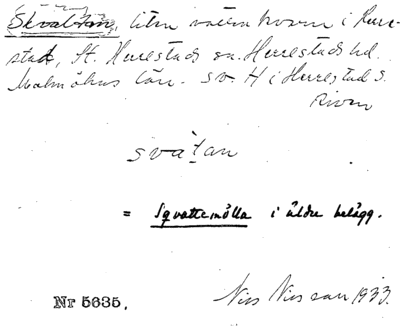 (Skvaltån), liten vattenkvarn i Herre-
stad, St. Herrestads sn. Herrestads hd.
Malmöhus län. sv. H i Herrestad s.
svạ̄tan
= Sqvattemölla i äldre belägg.
Nr 5635. Nils Nilsson 1933.